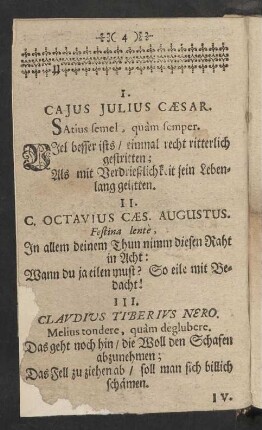 4
I.
CAJUS JULIUS CÆSAR.
SAtius semel, quàm semper.
VIel besser ists / einmal recht ritterlich
gestritten;
Als mit Verdrießlichkeit sein Leben-
lang gelitten.
II.
C. OCTAVIUS CÆS. AUGUSTUS.
Festina lentè.
In allem deinem Thun nimm diesen Raht
in Acht:
Wann du ja eilen must? So eile mit Be-
dacht!
III.
CLAVDIVS TIBERIVS NERO.
Melius tondere, quàm deglubere.
Das geht noch hin / die Woll den Schafen
abzunehmen;
Das Fell zu ziehen ab / soll man sich billich
schämen.
IV.